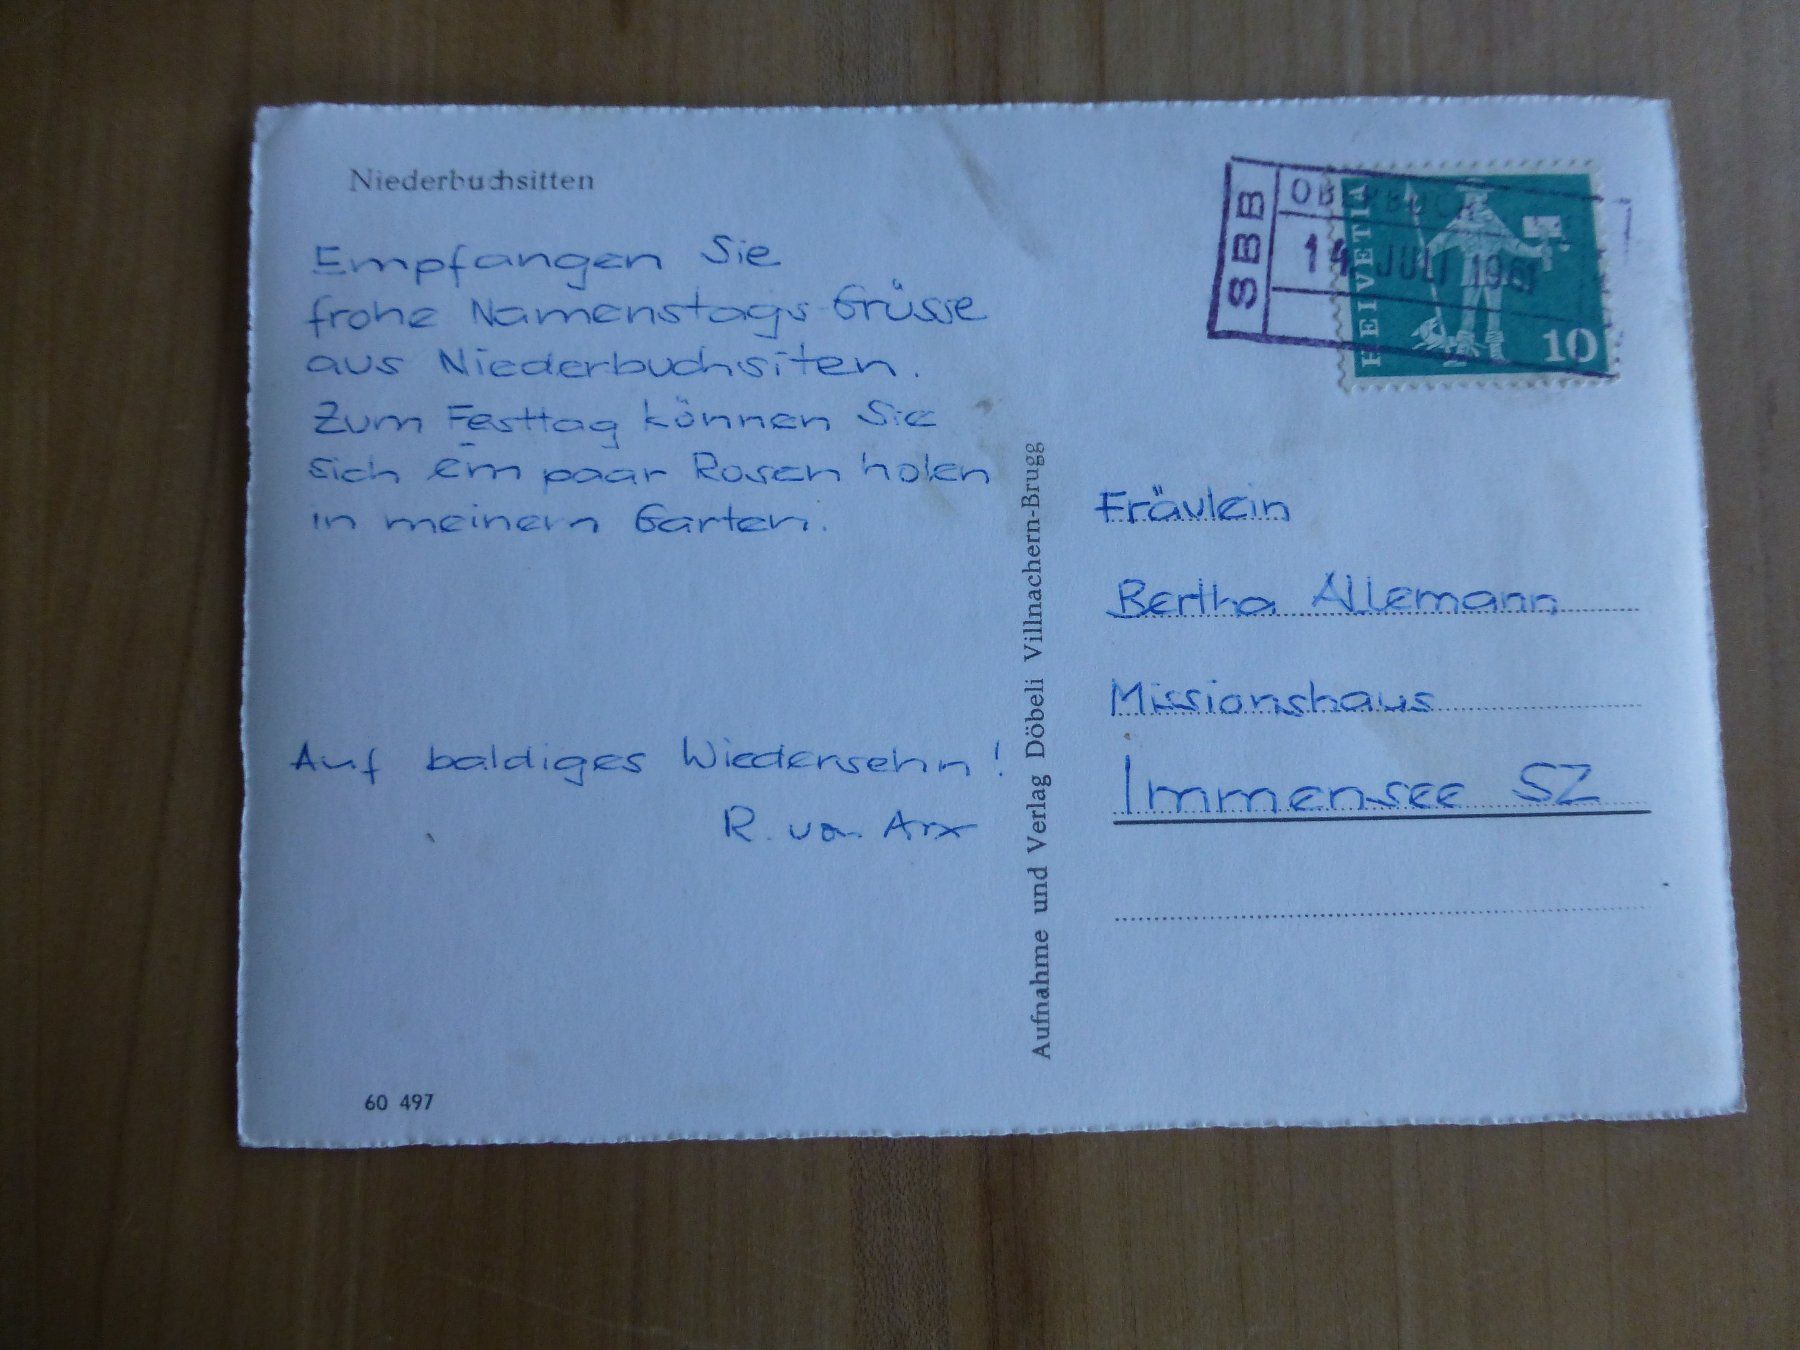 Niederbuchsitten
Empfangen Sie
frohe Namenstags-Grüsse
aus Niederbuchsiten.
Zum Festtag können Sie
sich ein paar Rosen holen
in meinem Garten.
Auf baldiges Wiedersehn!
R. von Arx
60 497
Aufnahme und Verlag Döbeli Villnachern-Brugg
SBB
14. JULI 1961
HELVETIA
10
Fräulein
Bertha Allemann
Missionshaus
Immensee SZ